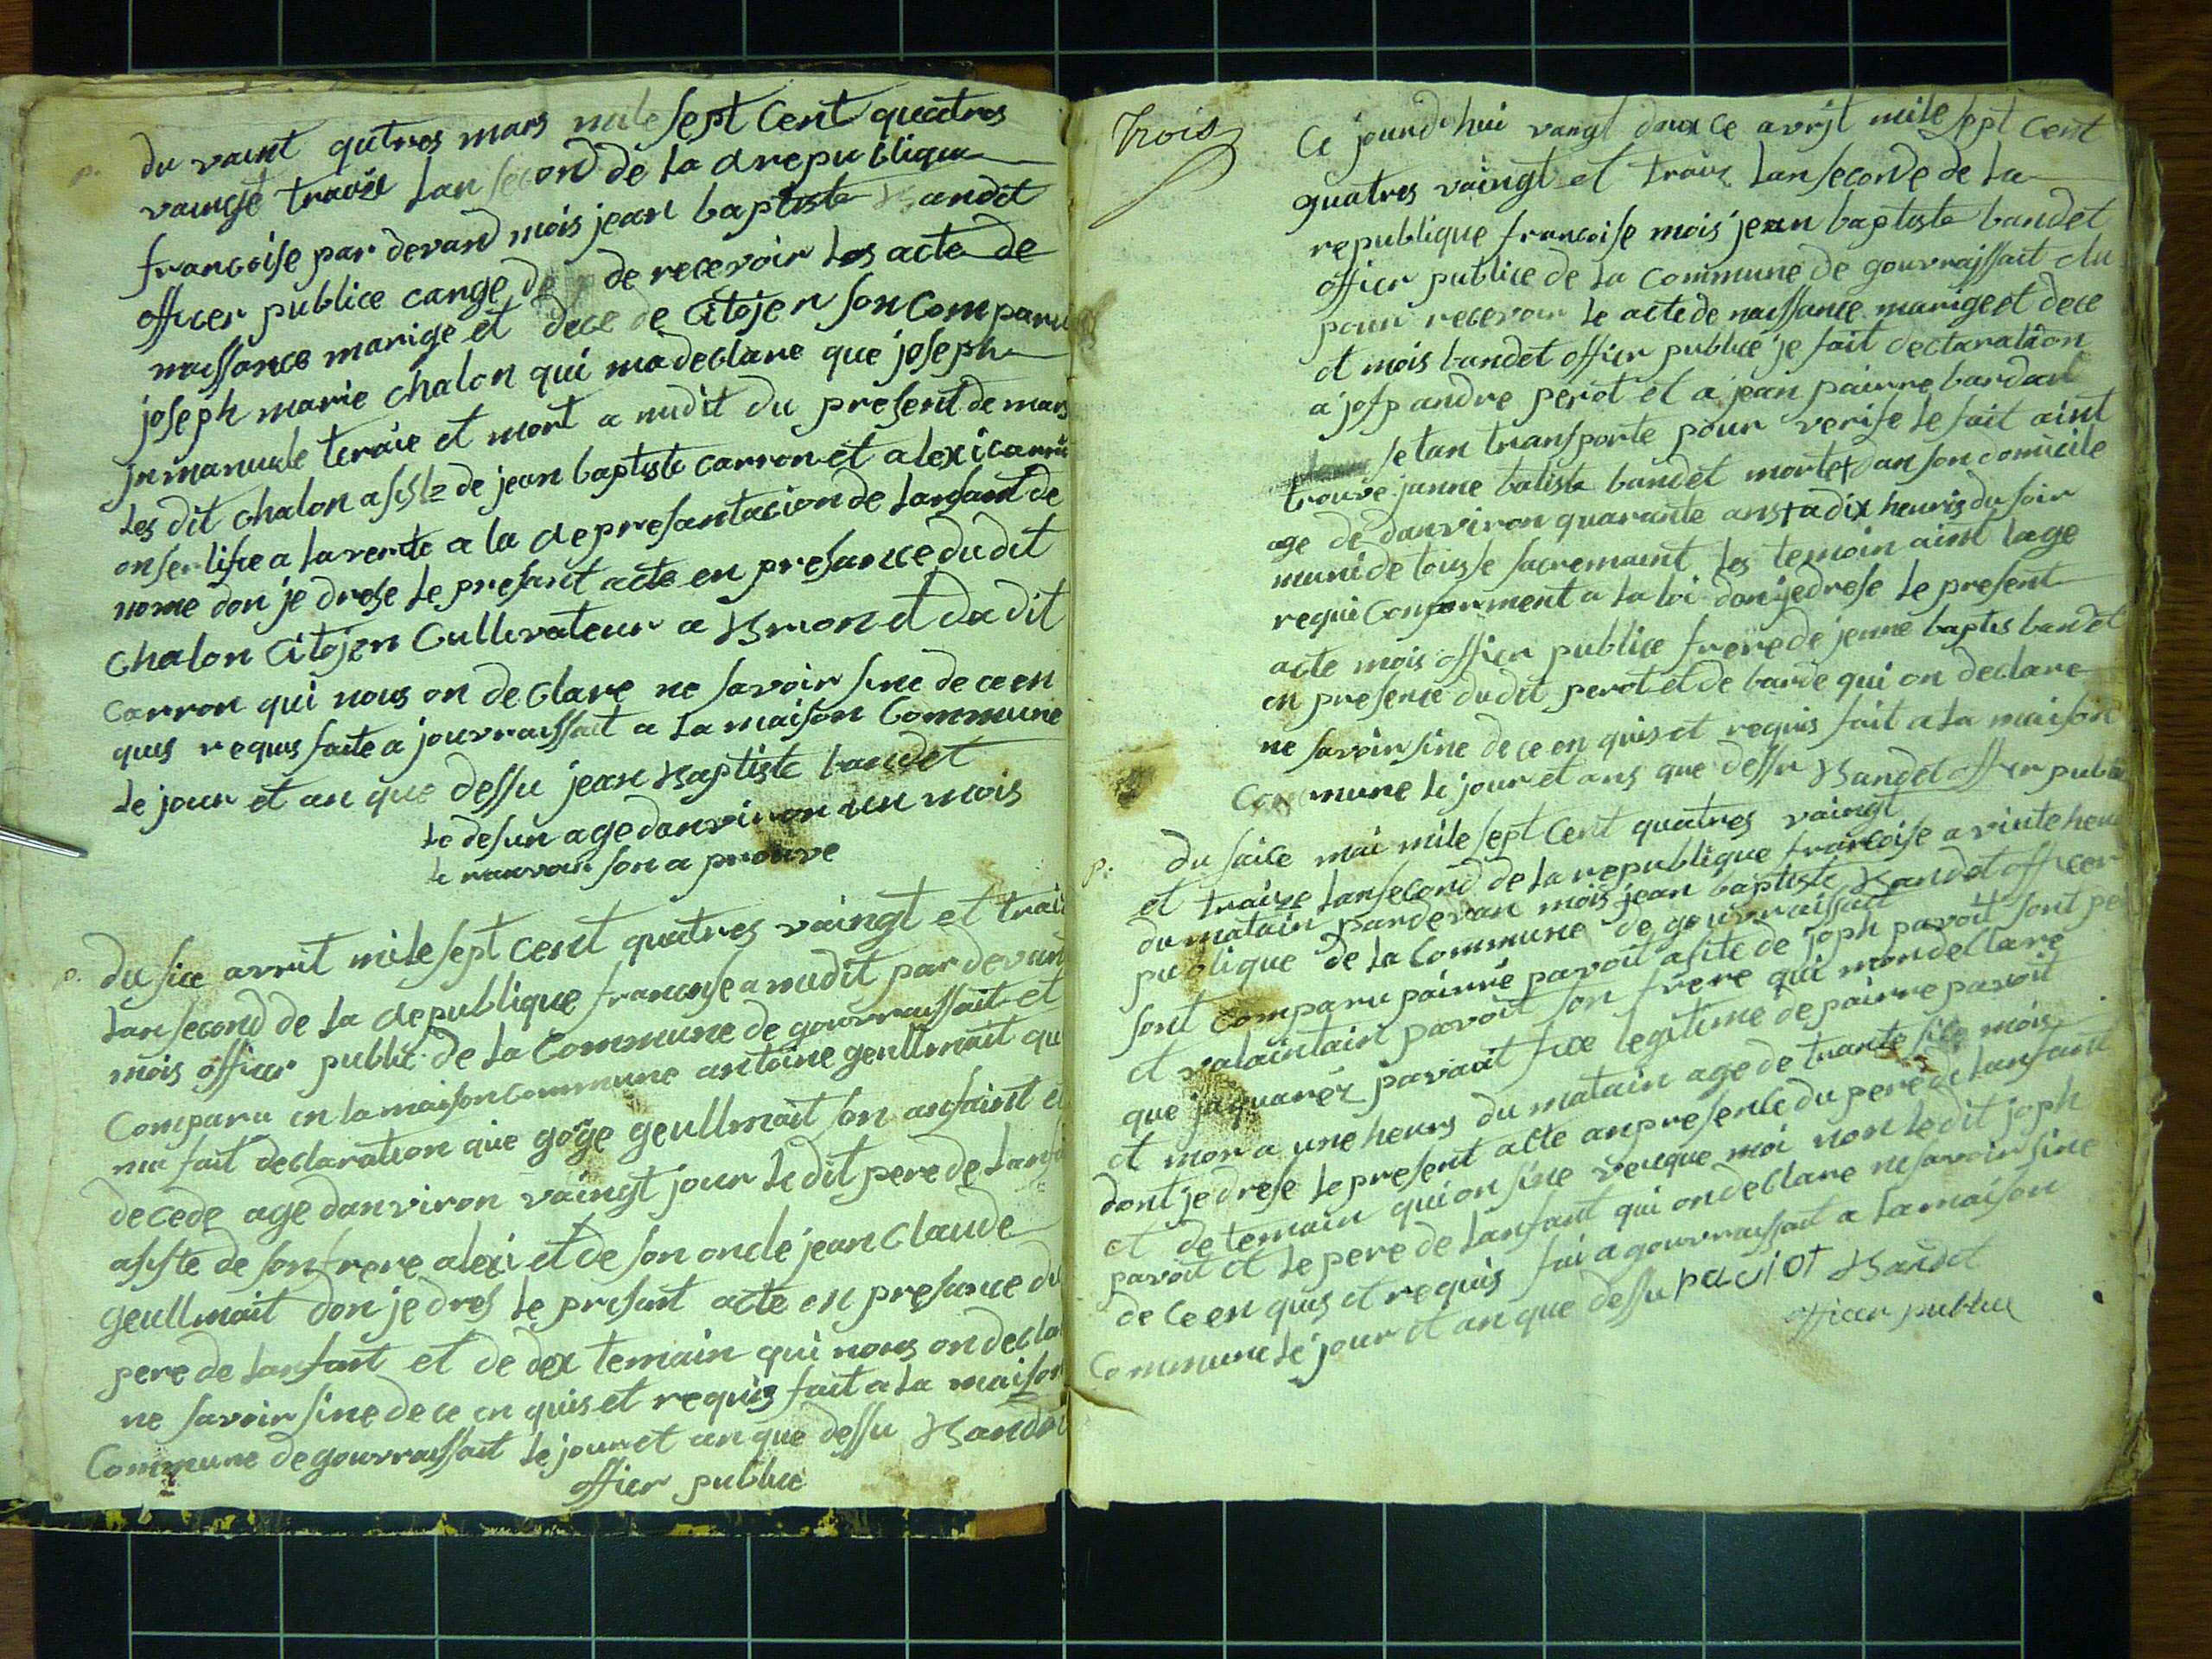 p. du vaint qutres mars mile sept Cent quatres
vaingt traize Lan second de La drepublique
francoise par devand mois jean baptiste Bandet
officer publice cange de de recevoir Les acte de
naissance marige et dece de Citojen son Comparu
joseph marie chalon qui ma declare que joseph
inmanuele teraie et mort a midit du present de mars
Les dit chalon asiste de jean baptiste carron et alexi carron
on sertifie a la verite a la depresantacion de Lanfant de
nome don je drese Le presant acte en presance du dit
Chalon Citojen Cultivateur a Brion et du dit
Carron qui nous on declare ne savoir sine de ce en
quis requis faite a jouvraissait a La maison Commune
Le jour et an que dessu jean Baptiste bandet
Le desun age danviron un mois
Le ranvoir son a prouve
p. du sice avrit mile sept cent quatres vaingt et trai
Lan second de La depublique francoise a midit par devant
mois officer public de La Commune de gouvraissait et
Comparu en La maison Commune antoine geullmait qu
ma fait declaration que goge geullmait son anfaint e
decede age danviron vaingt jour Le dit pere de Lanfa
asiste de son frere alexi et de son oncle jean Claude
geullmait don je dres Le presant acte en presance du
pere de Lanfant et de dex temain qui nous on decla
ne savoir sine de ce en quis et requis fait a La maison
Commune de gouvraissait Le jour et an que dessu Bandet
officer publice
Trois
Ce jourd hui vangt deux ce avrjt mile sept Cent
quatres vaingt et traiz Lan seconde de La
republique francoise mois jean baptiste bandet
officr publice de La Commune de gouvraissait elu
pour recevoir Le acte de naissance marige et dece
et mois bandet officr publice je fait declaration
a josp andre perot et a jean pairre bardard
se tan transporte pour verife Le fait aint
trouve janne batiste bandet morte dan son domicile
age de danviron quarante ans a dix heuris du soir
muni de tous le sacremaint Les temoin aint Lage
requi Conforment a La Loi don je drese Le present
acte mois officr publice frere de jenne baptis bandet
en presence du dit perot et de barde qui on declare
ne savoir sine de ce en quis et requis fait a La maison
Commune Le jour et ans que dessu Bandet officr public
p. du saice mai mile sept Cent quatres vaingt
et traize Lan second de La republique francoise a vinte heur
du matain pardevan mois jean baptiste Bandet officer
publique de La Commune de gouvraissait
sont Comparu pairre pavoit asite de joph pavoit sont per
et valaintain pavoit son frere qui mon declare
que jaquarez pavoit fice legitime de pairre pavoit
et mor a une heurs du matain age de trante sice mois
dont je drese Le present acte anpresence du pere de Lanfant
et de temain qui on sine veuque moi non Le dit joph
pavoit et Le pere de Lanfant qui on declare ne savoir sine
de ce en quis et requis fai a gouvraissait a La maison
Commune Le jour et an que dessu paviot Bandet
officer publice